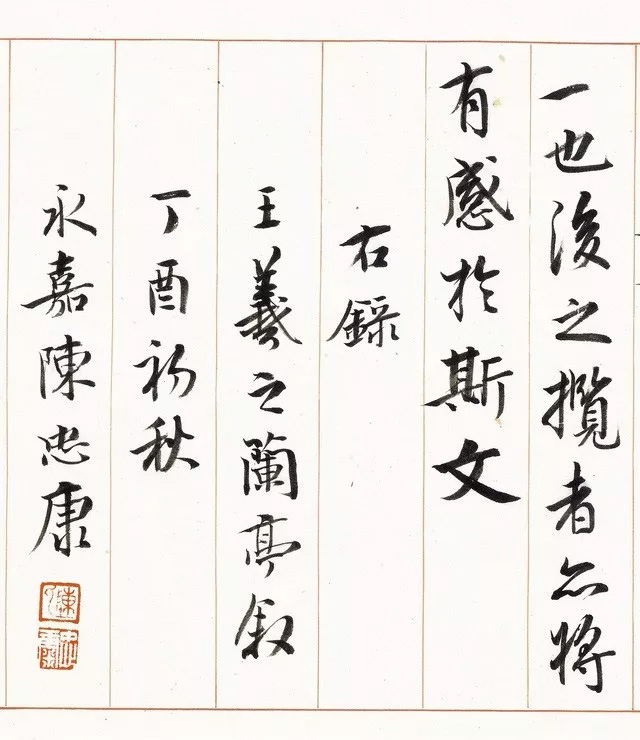 一也後之攬者亦將
有感於斯文
右錄
王羲之蘭亭敘
丁酉初秋
永嘉陳忠康
陳
忠康